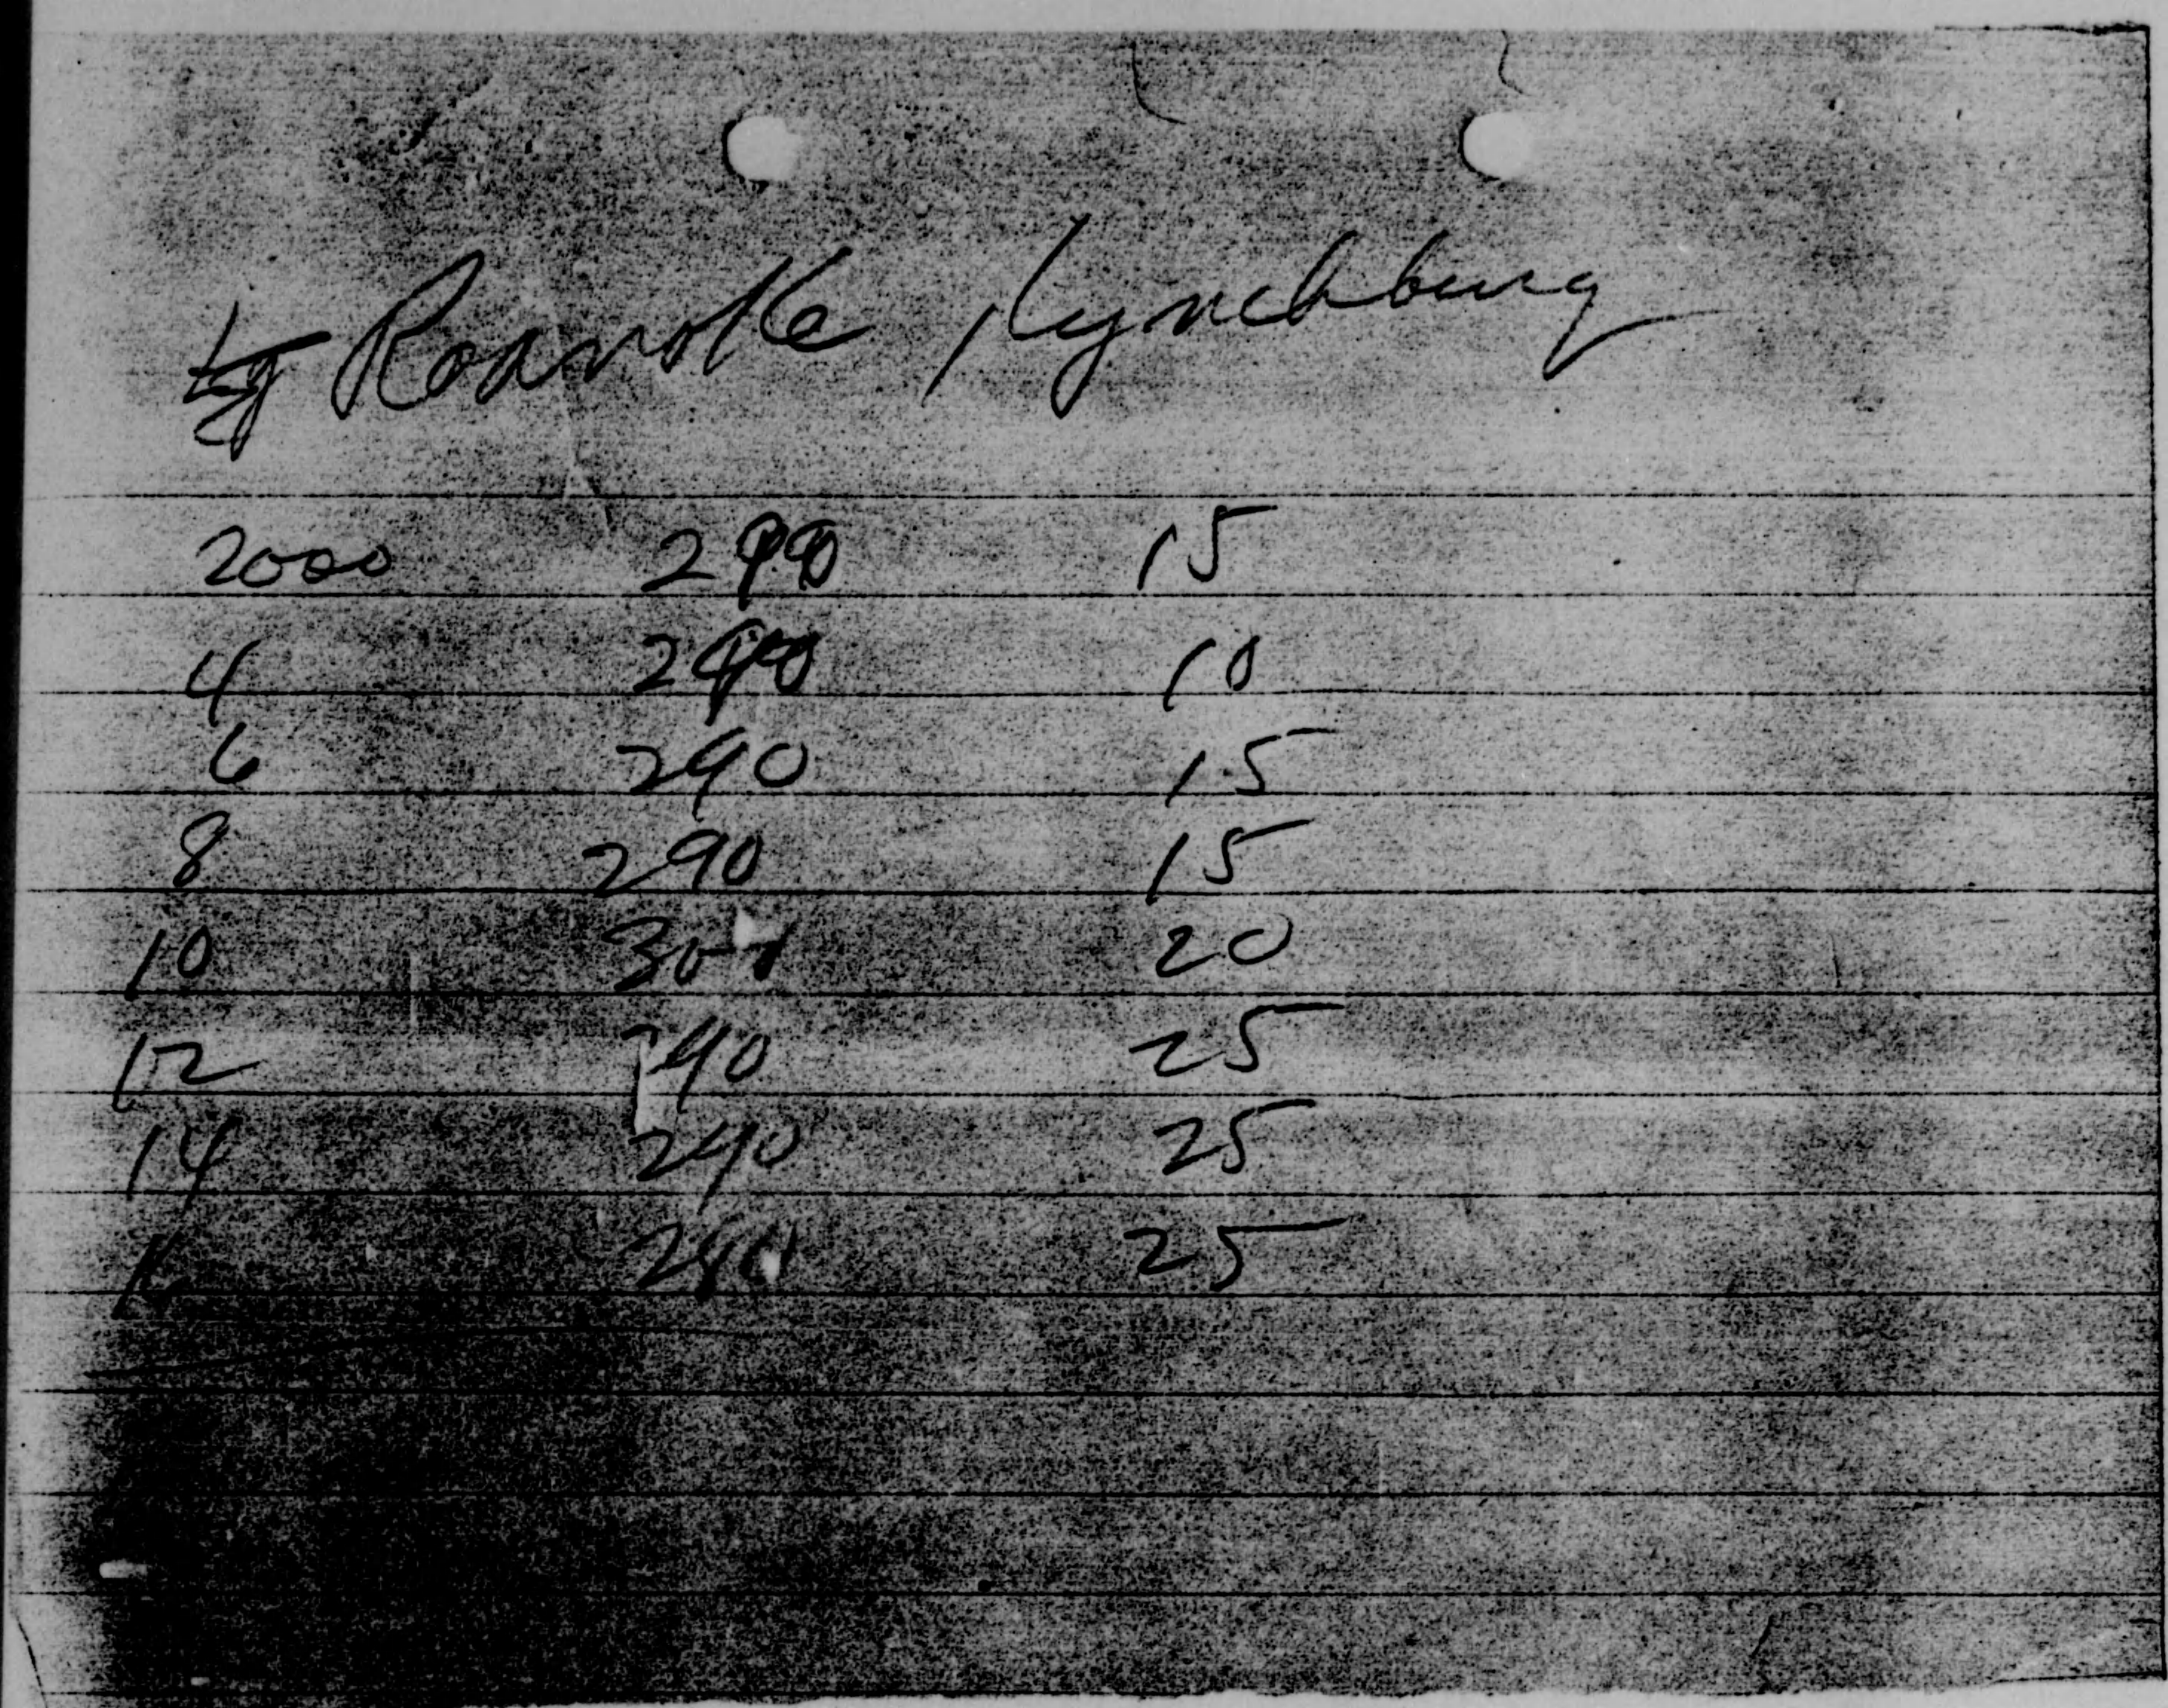 Roanoke, Lynchburg
2000 290 15
4 290 10
6 290 15
8 290 15
10 300 20
12 290 25
14 290 25
16 280 25